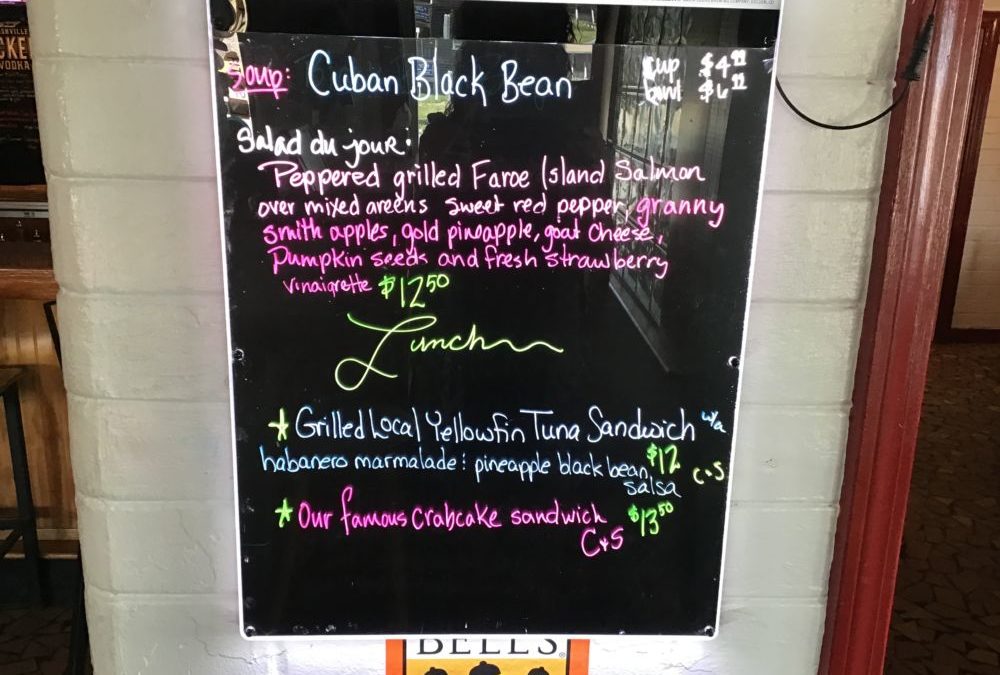 Soup: Cuban Black Bean cup $4
bowl $6
Salad du jour:
Peppered grilled Faroe Island Salmon
over mixed greens sweet red pepper, granny
smith apples, gold pineapple, goat cheese,
Pumpkin seeds and fresh strawberry
vinaigrette $12.50
Lunch
Grilled Local Yellowfin Tuna Sandwich w/a
habanero marmalade : pineapple black bean $12
salsa C+S
Our famous Crabcake sandwich $13.50
C+S
BELL'S
VODKA